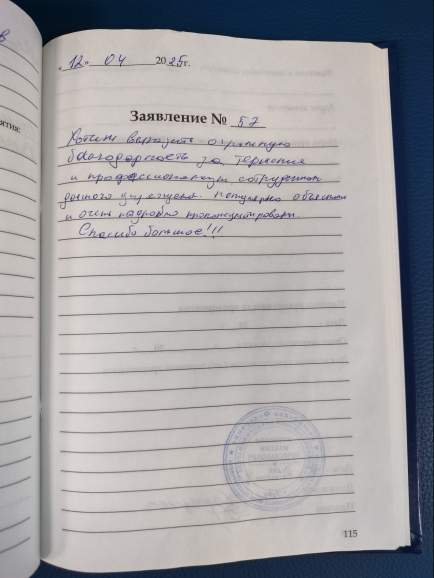 в
ятия:
„12" 04 2025г.
Заявление № 57
Хотим выразить огромную
благодарность за терпения
и профессионализм сотрудникам
данного учреждения. популярно объяснили
и очень подробно проконсультировали.
Спасибо большое!!!
115